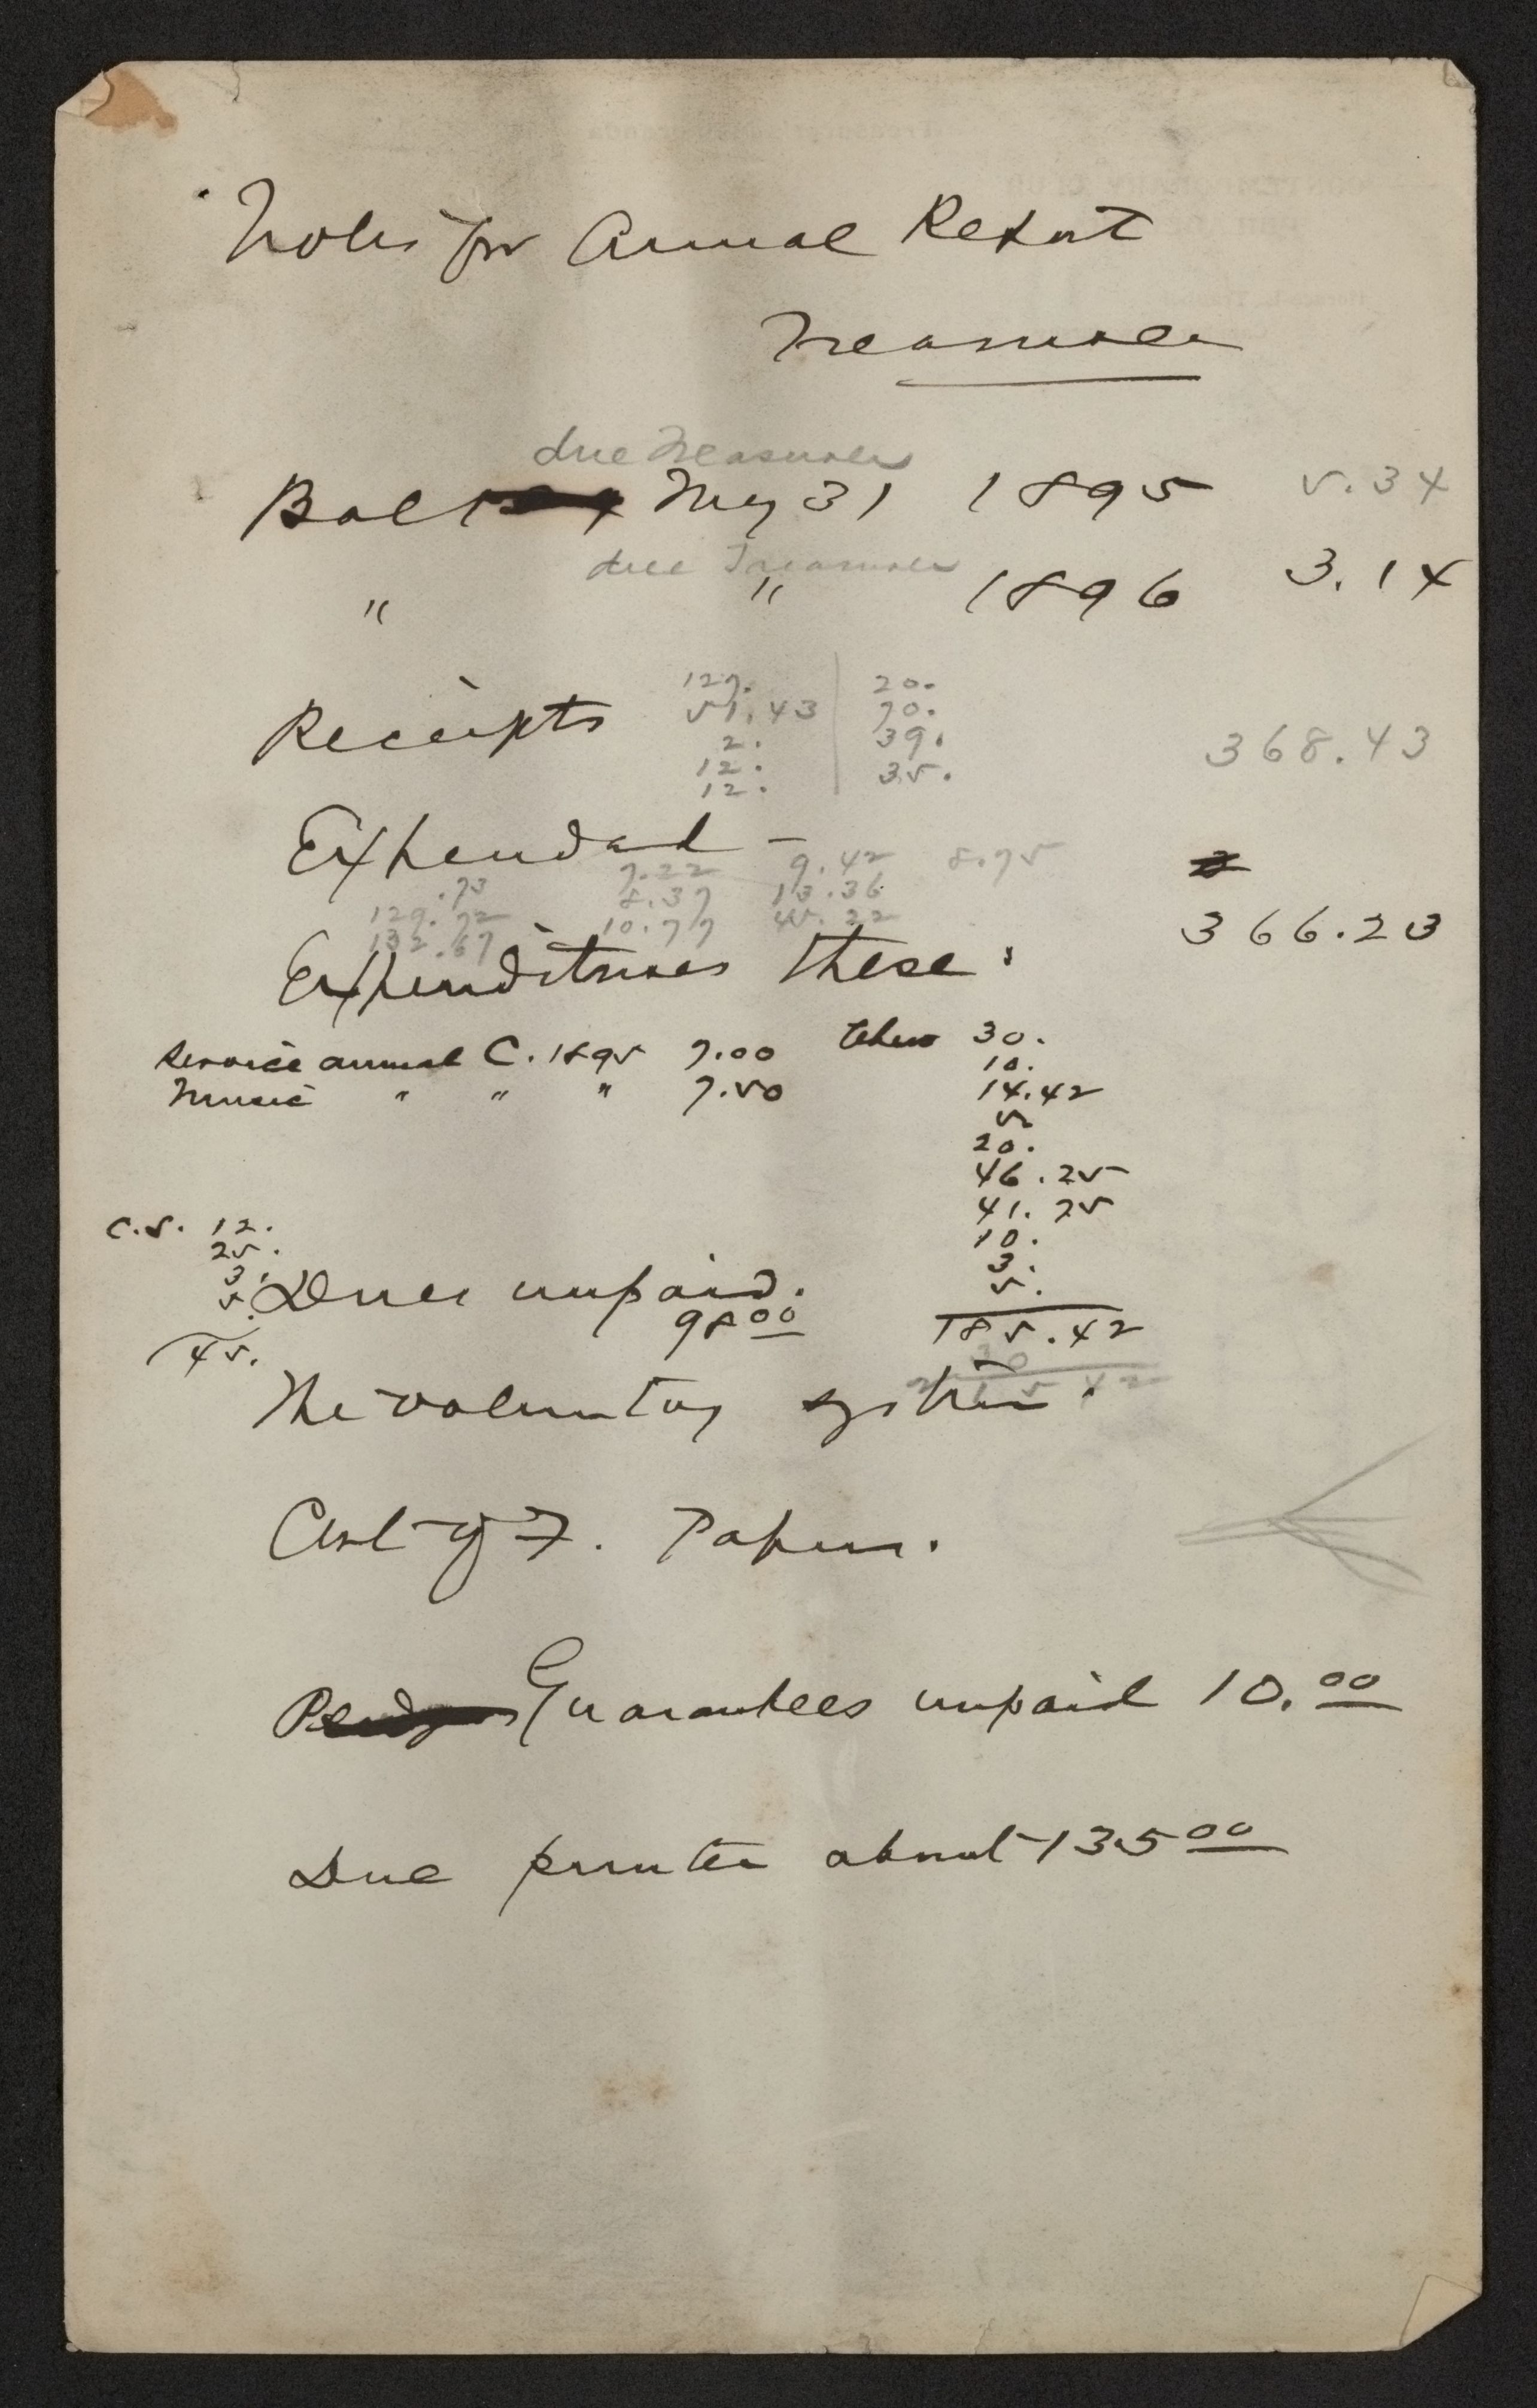 Notes for Annual Report
Treasurer
due Treasurer
Bal May 31 1895 5.34
due Treasurer
" " 1896 3.14
127. 20.
Receipts 51.43 70.
2. 39. 368.43
12. 35.
12.
Expended –
7.22 9.42 8.75
.73 8.37 13.36
129.72 10.77 45.22
132.67 366.23
Expenditures these:
Service annual C. 1895 7.00 30.
Music " " " 7.50 10.
14.42
5
20.
46.25
C.S. 12. 41.75
25. 10.
3. 3.
5. Dues unpaid. 5.
98 00 185.42
45. 30
The voluntary system. 215 42
Cost of F. Papers.
Guarantees unpaid 10.00
Due printer about 135 00